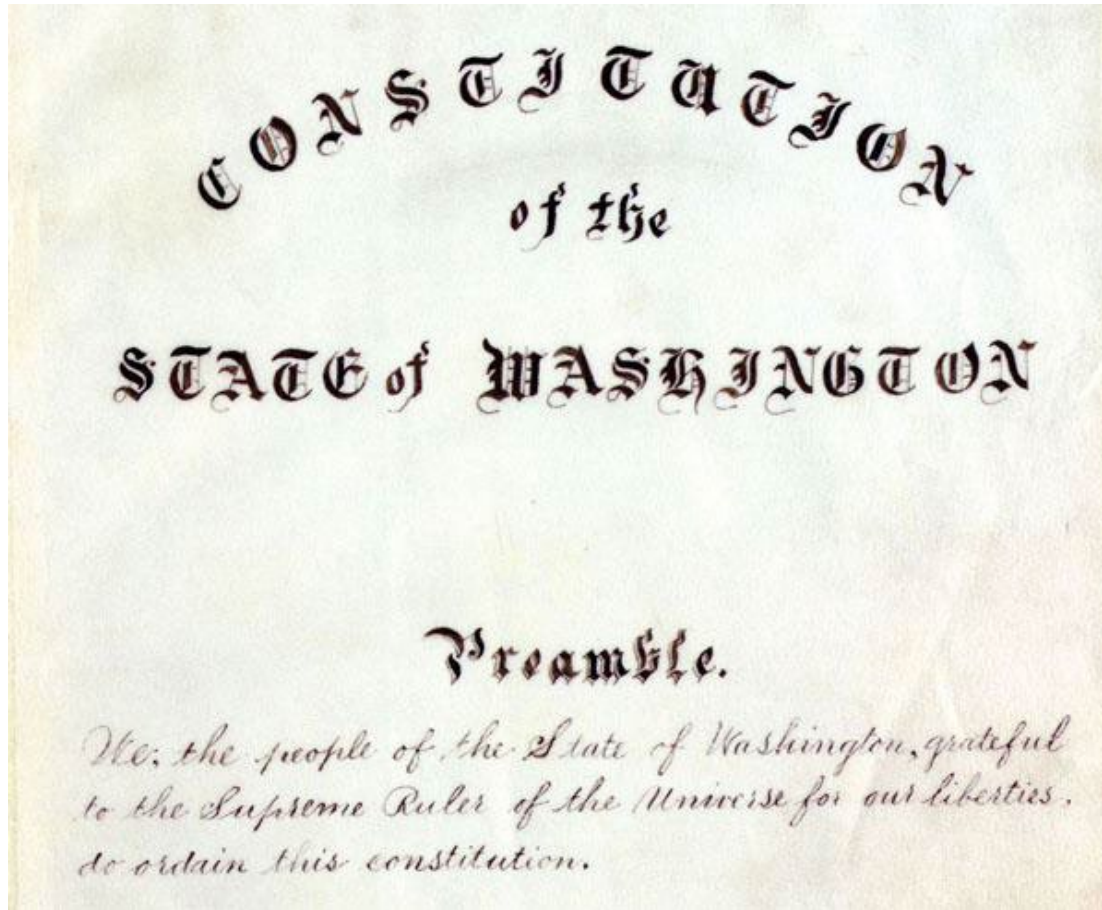 CONSTITUTION
of the
STATE of WASHINGTON
Preamble.
We, the people of the State of Washington, grateful
to the Supreme Ruler of the Universe for our liberties,
do ordain this constitution.